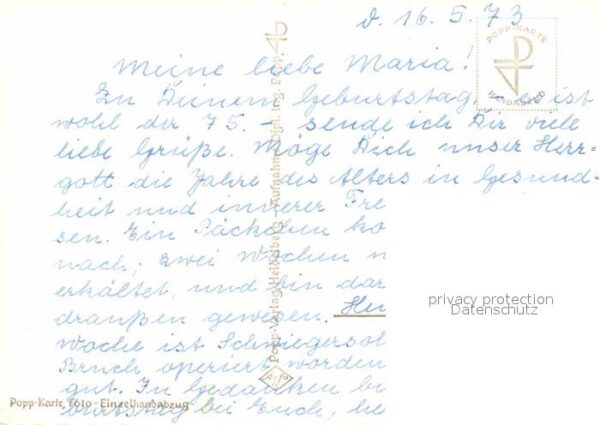 d. 16. 5. 73
POPP-KARTE
HANDABZUG
Meine liebe Maria!
Zu Deinem Geburtstag, – es ist
wohl der 75. – sende ich Dir viele
liebe Grüße. Möge Dich unser Herr-
gott die Jahre des Alters in Gesund-
heit und innerer Fre
sen. Ein Päckchen ko
nach; zwei Wochen n
erkältet, und bin dar
draußen gewesen. Heu
Woche ist Schwiegersol
Bruch operiert worden
gut. In Gedanken bi
burtstag bei Euch, he
Popp-Verlag Heidelberg - Aufnahme Dipl. Ing. POPP
Agfa
Popp-Karte, Foto - Einzelhandabzug
privacy protection
Datenschutz